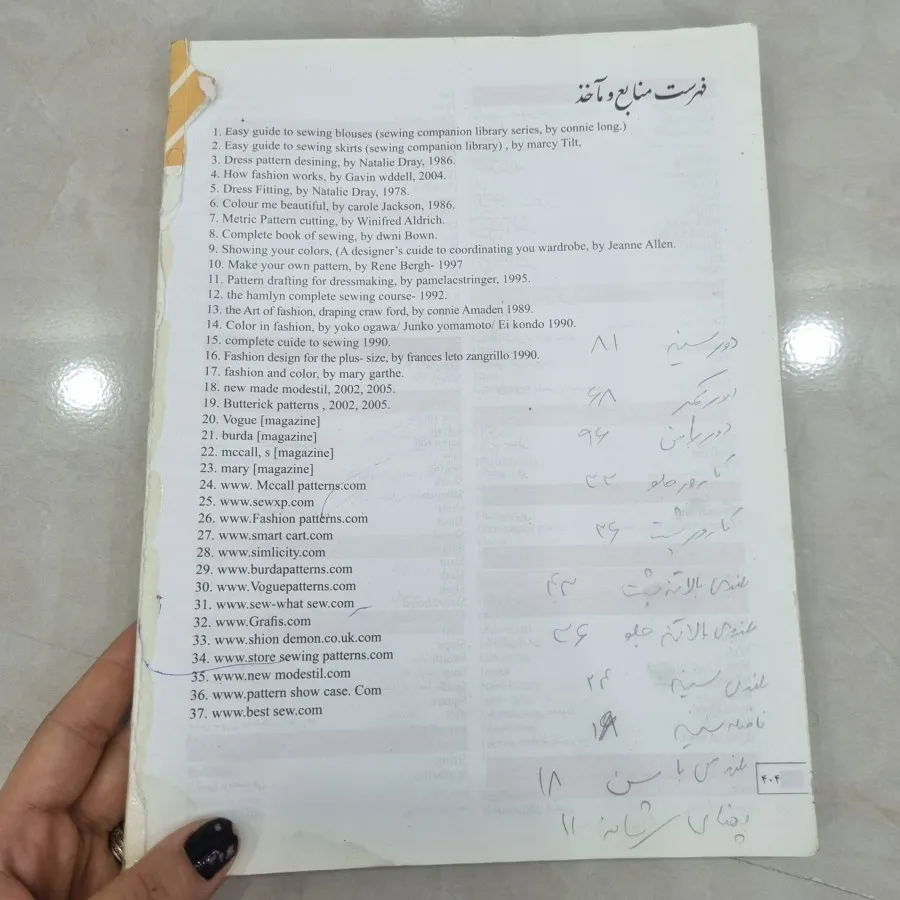 فهرست منابع و مآخذ
1. Easy guide to sewing blouses (sewing companion library series, by connie long.)
2. Easy guide to sewing skirts (sewing companion library) , by marcy Tilt,
3. Dress pattern desining, by Natalie Dray, 1986.
4. How fashion works, by Gavin wddell, 2004.
5. Dress Fitting, by Natalie Dray, 1978.
6. Colour me beautiful, by carole Jackson, 1986.
7. Metric Pattern cutting, by Winifred Aldrich.
8. Complete book of sewing, by dwni Bown.
9. Showing your colors, (A designer's cuide to coordinating you wardrobe, by Jeanne Allen.
10. Make your own pattern, by Rene Bergh- 1997
11. Pattern drafting for dressmaking, by pamelacstringer, 1995.
12. the hamlyn complete sewing course- 1992.
13. the Art of fashion, draping craw ford, by connie Amaden 1989.
14. Color in fashion, by yoko ogawa/ Junko yomamoto/ Ei kondo 1990.
15. complete cuide to sewing 1990.
16. Fashion design for the plus- size, by frances leto zangrillo 1990.
17. fashion and color, by mary garthe.
18. new made modestil, 2002, 2005.
19. Butterick patterns , 2002, 2005.
20. Vogue [magazine]
21. burda [magazine]
22. mccall, s [magazine]
23. mary [magazine]
24. www. Mccall patterns.com
25. www.sewxp.com
26. www.Fashion patterns.com
27. www.smart cart.com
28. www.simlicity.com
29. www.burdapatterns.com
30. www.Voguepatterns.com
31. www.sew-what sew.com
32. www.Grafis.com
33. www.shion demon.co.uk.com
34. www.store sewing patterns.com
35. www.new modestil.com
36. www.pattern show case. Com
37. www.best sew.com
دور سینه ۸۱
دور کمر ۶۸
دور باسن ۹۶
کارور جلو ۳۳
کارور پشت ۳۶
بلندی بالاتنه پشت ۴۳
بلندی بالاتنه جلو ۳۶
بلندی سینه ۲۴
فاصله سینه
بلندی باسن ۱۸
پهنای سرشانه ۱۱
۴۰۴